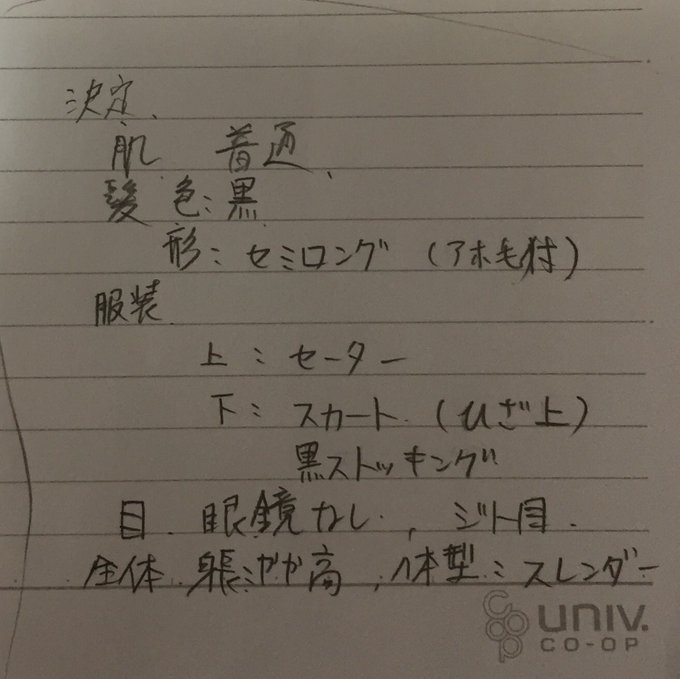 決定、
肌 普通、
髪 色：黒
形：セミロング（アホ毛付）
服装
上：セーター
下：スカート.（ひざ上）
黒ストッキング
目．眼鏡なし．，ジト目．
全体．身長：やや高，体型：スレンダー
UNIV.
CO-OP